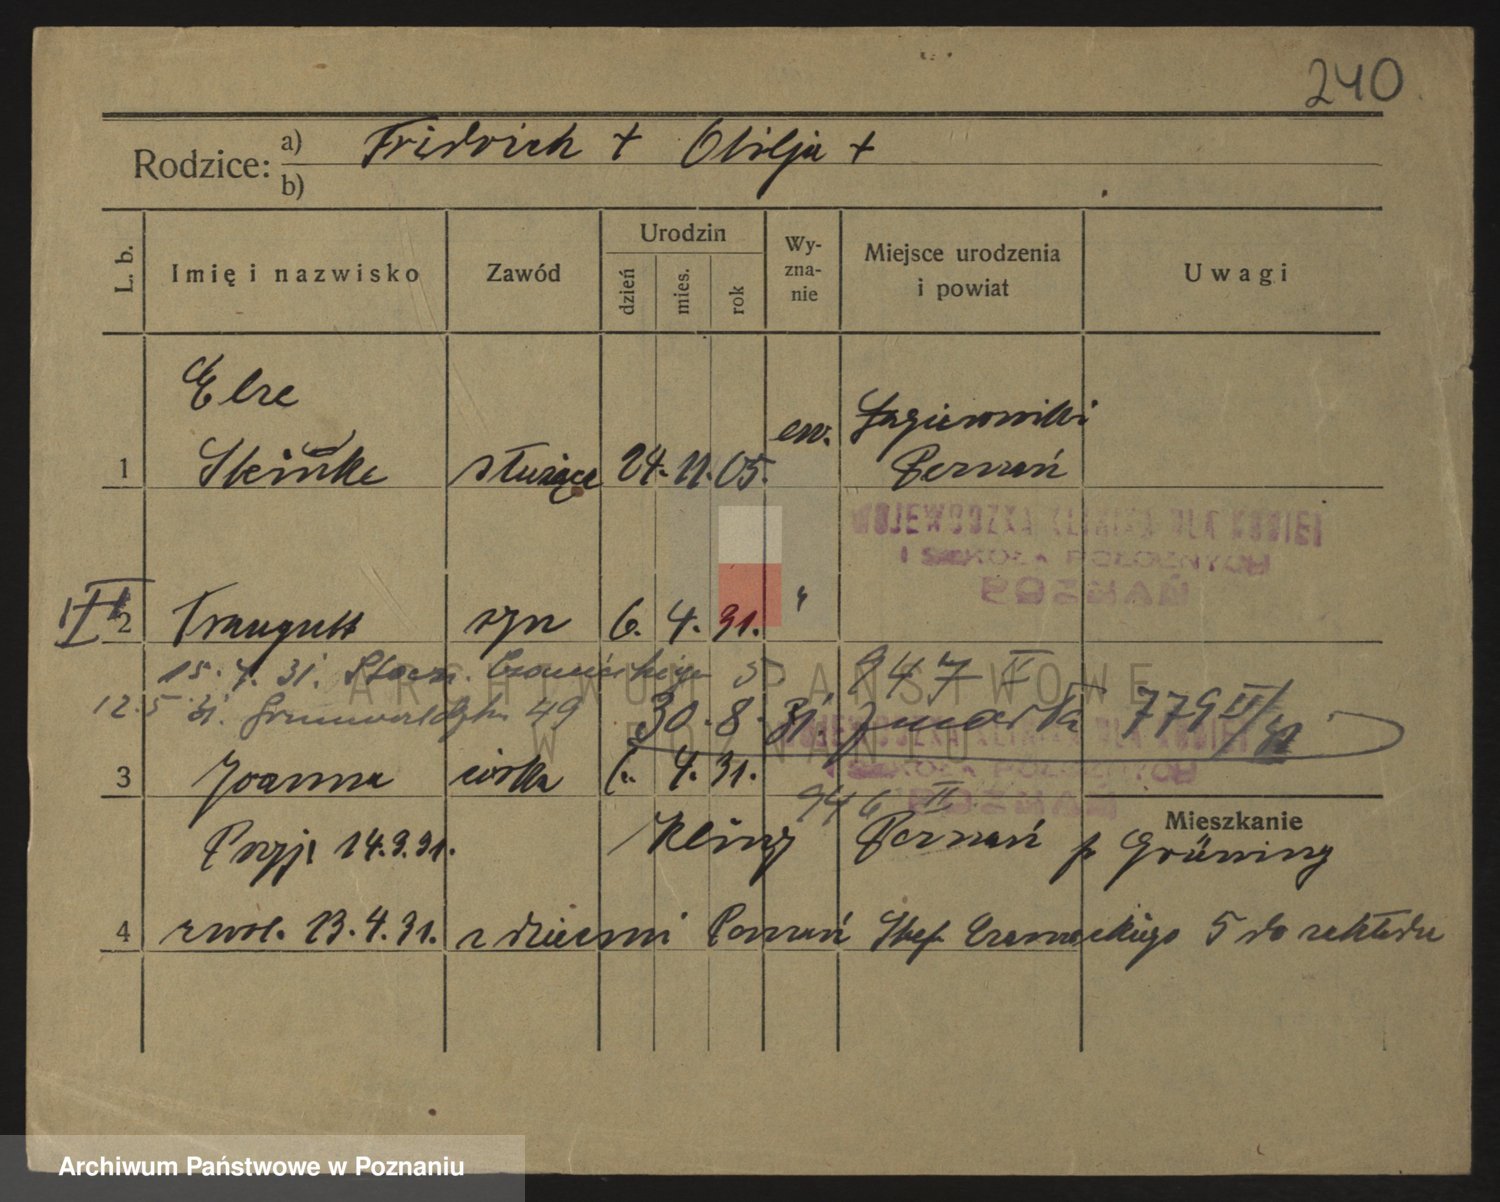 240
Rodzice: a) Fridrich + Otilja +
b)
L. b. Imię i nazwisko Zawód Urodzin dzień mies. rok Wy-zna-nie Miejsce urodzenia i powiat Uwagi
Else
1 Steinke służąca 24. 11. 05. ew. Łagiewniki
Poznań
WOJEWÓDZKA KLINIKA DLA KOBIET
I SZKOŁA POŁOŻNYCH
POZNAŃ
2 Traugutt syn 6. 4. 31. "
15. 4. 31. 5 947 II
12. 5 31. Grunwaldzka 49 30. 8. 31. zmarła 779 II/
WOJEWÓDZKA KLINIKA DLA KOBIET
I SZKOŁA POŁOŻNYCH
POZNAŃ
3 Joanna córka 6. 4. 31.
946 II
Mieszkanie
Przyj. 24. 3. 31. Poznań p Grüning
4 zwol. 13. 4. 31. z dziećmi Poznań Czarneckiego 5 do zakładu
ARCHIWUM PAŃSTWOWE
W POZNANIU
Archiwum Państwowe w Poznaniu